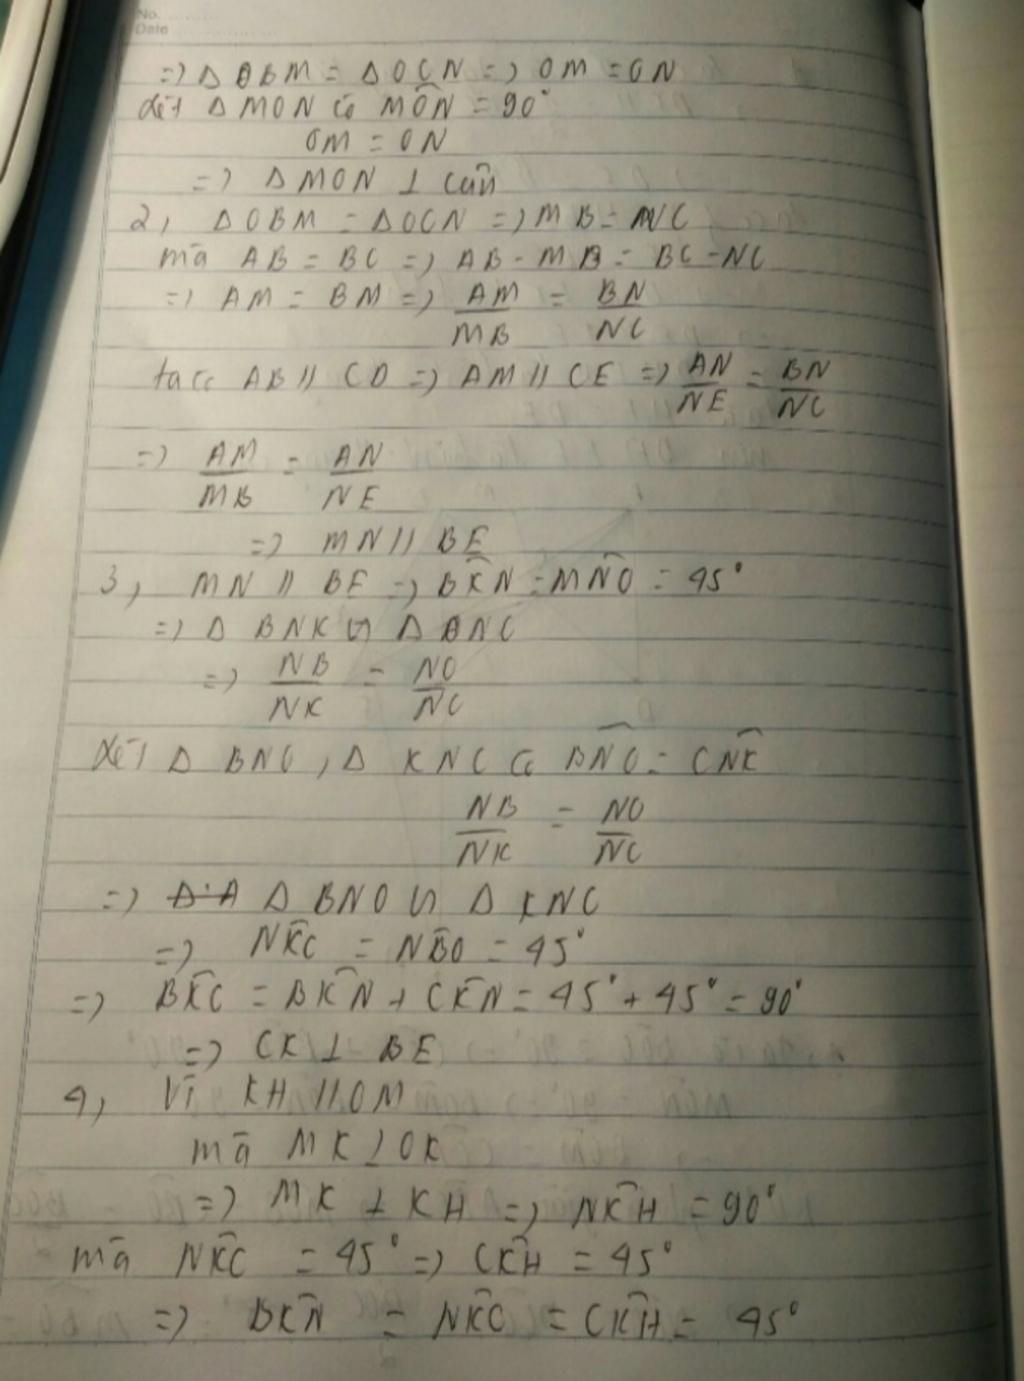 No.
Date
=> Δ OBM = Δ OCN => OM = ON
Xét Δ MON có MÔN = 90°
OM = ON
=> Δ MON ⊥ cân
2, Δ OBM = Δ OCN => MB = NC
mà AB = BC => AB - MB = BC - NC
=> AM = BM => AM/MB = BN/NC
ta có AB // CD => AM // CE => AN/NE = BN/NC
=> AM/MB = AN/NE
=> MN // BE
3, MN // BE => BK̂N = MN̂O = 45°
=> Δ BNK ∽ Δ ONC
=> NB/NK = NO/NC
Xét Δ BNO, Δ KNC có BN̂O = CN̂K
NB/NK = NO/NC
=> Δ BNO ∽ Δ KNC
=> NK̂C = NB̂O = 45°
=> BK̂C = BK̂N + CK̂N = 45° + 45° = 90°
=> CK ⊥ BE
4, Vì KH // OM
mà MK ⊥ OK
=> MK ⊥ KH => NK̂H = 90°
mà NK̂C = 45° => CK̂H = 45°
=> BK̂N = NK̂C = CK̂H = 45°